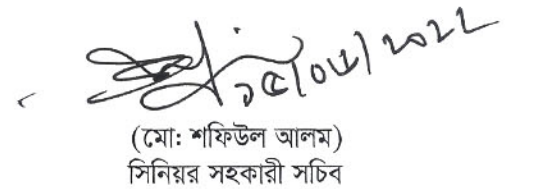 ১৫/০৬/২০২২
(মো: শফিউল আলম)
সিনিয়র সহকারী সচিব